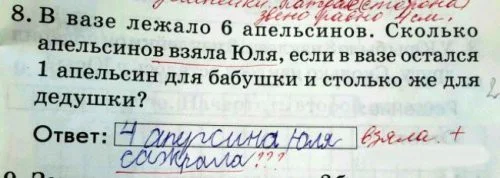 звено равно 4см.
8. В вазе лежало 6 апельсинов. Сколько
апельсинов взяла Юля, если в вазе остался
1 апельсин для бабушки и столько же для
дедушки?
Ответ: 4 апурсина юля взяла. +
сажрала???